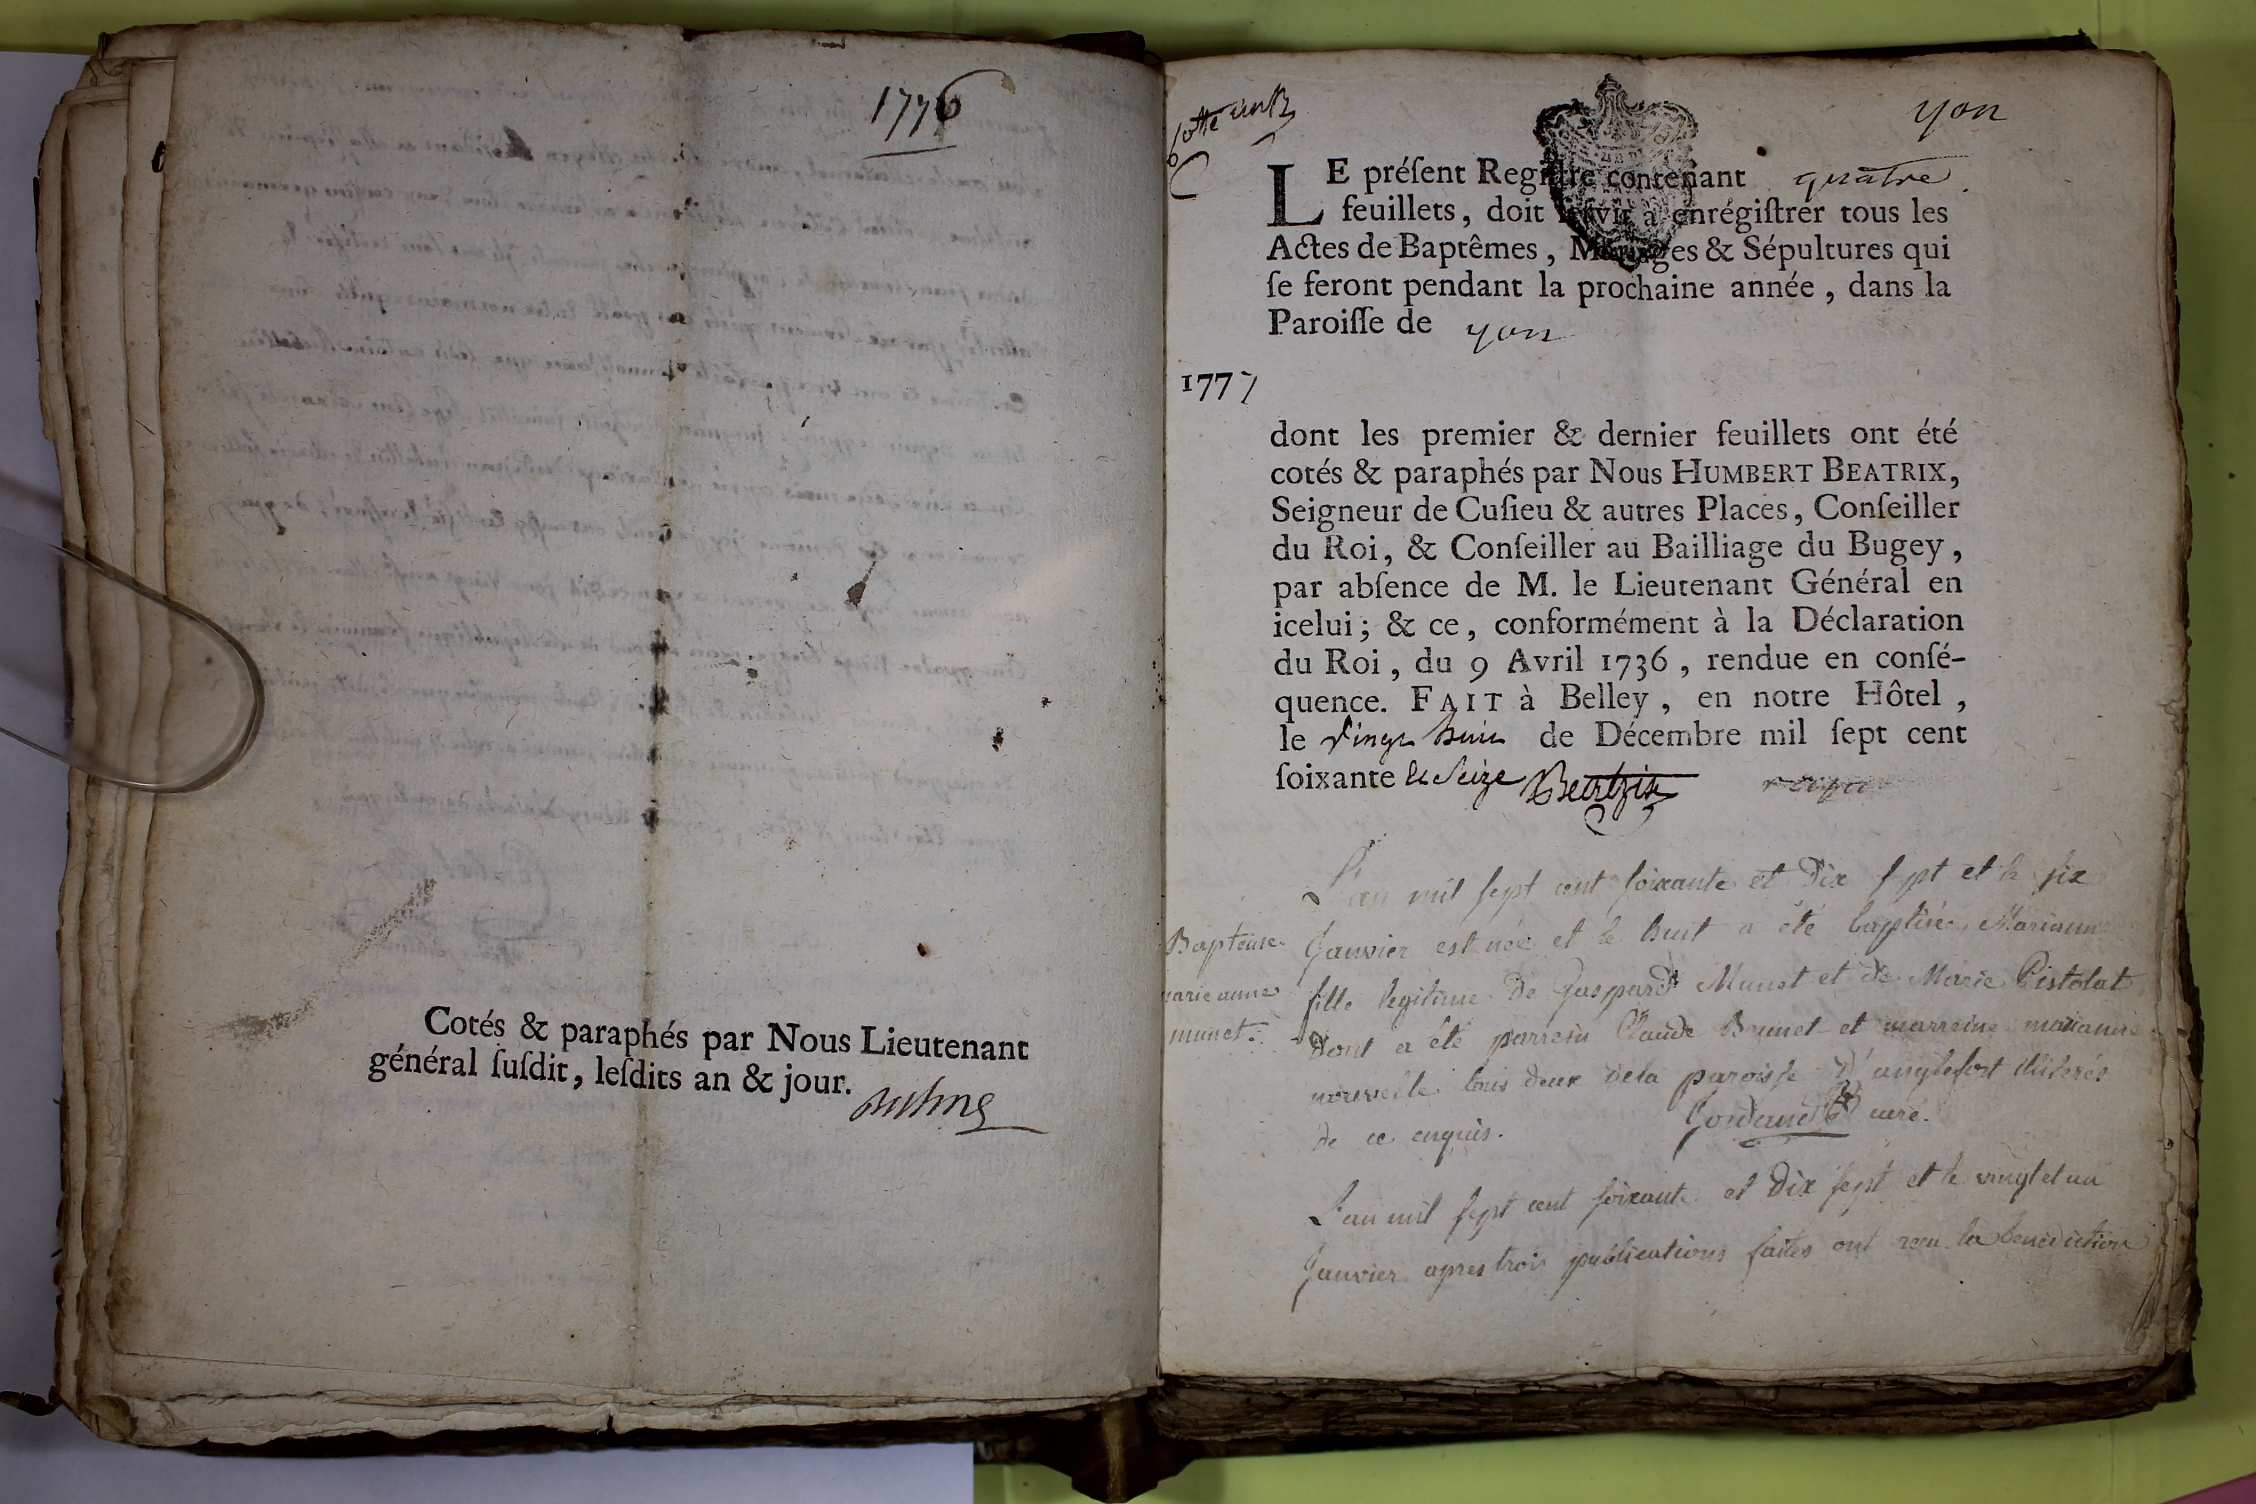 1776
Cotés & paraphés par Nous Lieutenant
général ſuſdit, leſdits an & jour.
Cotte
yon
LE préſent Regiſtre contenant quatre
feuillets, doit ſervir à enrégiſtrer tous les
Actes de Baptêmes, Mariages & Sépultures qui
ſe feront pendant la prochaine année, dans la
Paroiſſe de yon
1777
dont les premier & dernier feuillets ont été
cotés & paraphés par Nous HUMBERT BEATRIX,
Seigneur de Cuſieu & autres Places, Conſeiller
du Roi, & Conſeiller au Bailliage du Bugey,
par abſence de M. le Lieutenant Général en
icelui; & ce, conformément à la Déclaration
du Roi, du 9 Avril 1736, rendue en conſé-
quence. FAIT à Belley, en notre Hôtel,
le Vingt huit de Décembre mil ſept cent
ſoixante & Seize Beatrix
L'an mil ſept cent ſoixante et Dix ſept et le ſix
Janvier est née et le huit a été baptisée Marianne
fille legitime De Gaspard Munet et de Marie Pistolat
Dont a été parrein Claude Brunet et marreine marianne
tous deux dela paroisse D'anglefort illiterés
de ce enquis. curé.
Bapteme
marie anne
munet.
L'an mil ſept cent ſoixante et Dix ſept et le vingt et un
Janvier apres trois publications faites ont recu la benediction